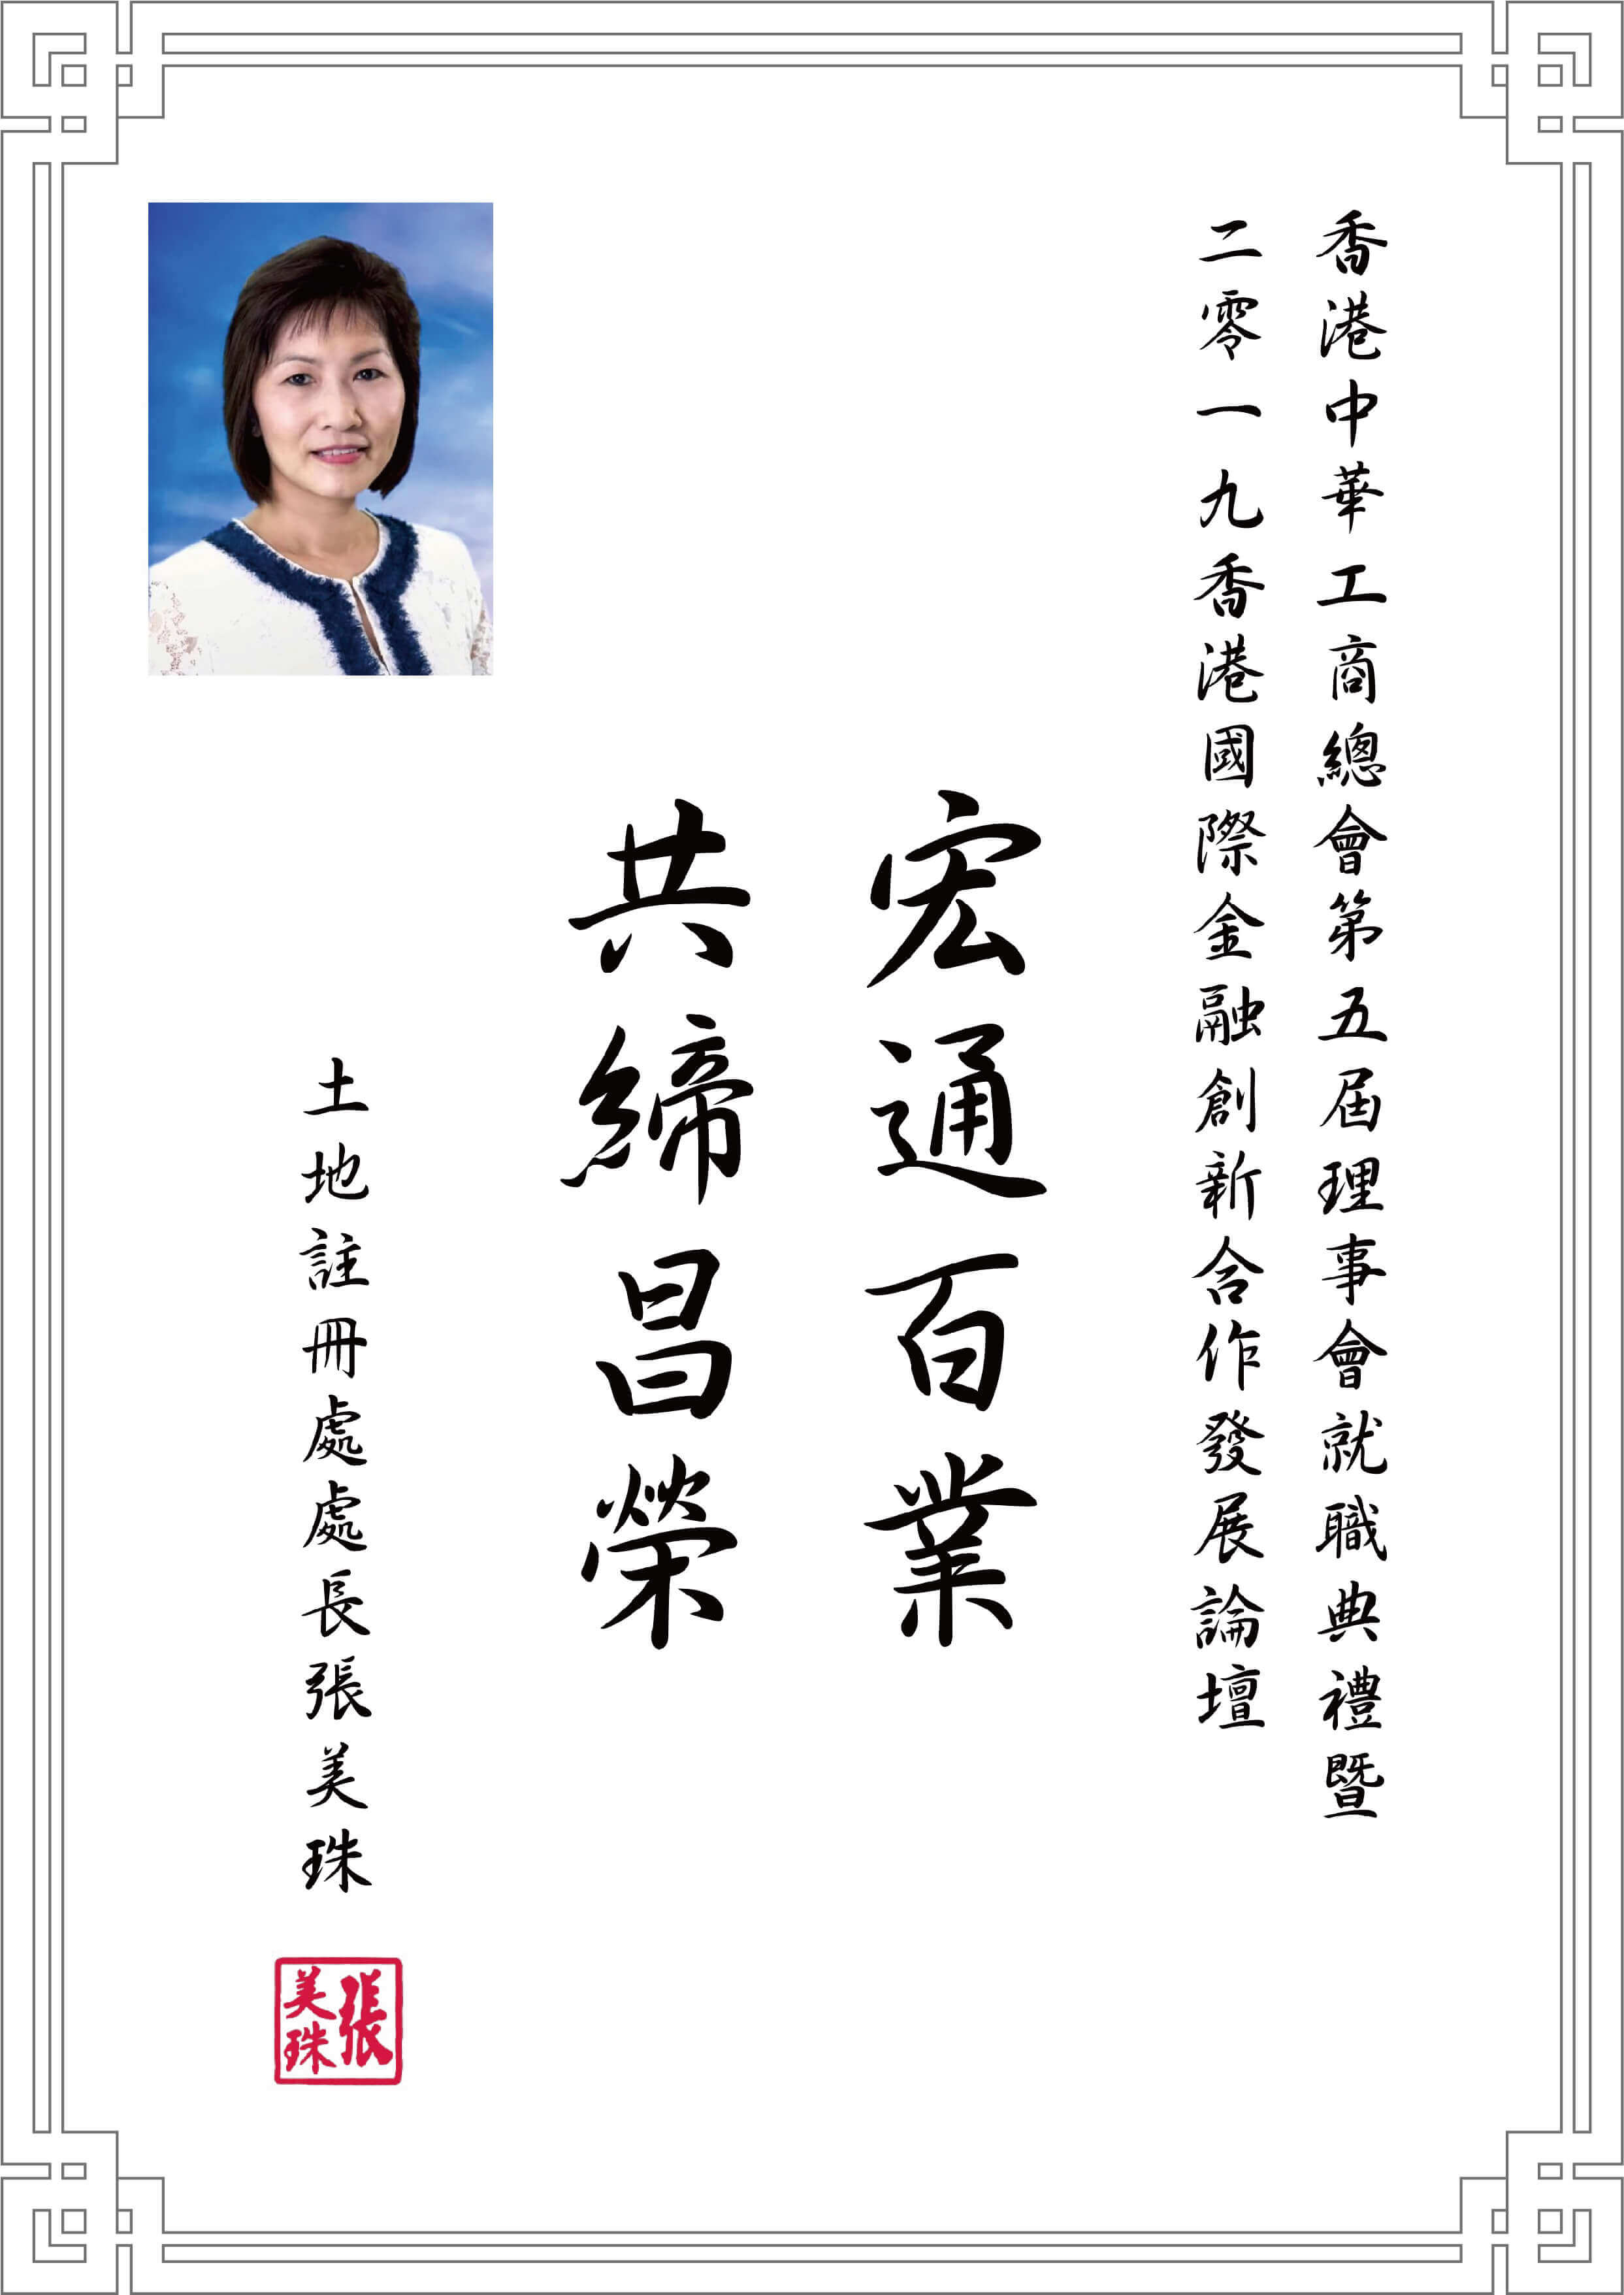 香港中華工商總會第五屆理事會就職典禮暨
二零一九香港國際金融創新合作發展論壇
宏通百業
共締昌榮
土地註冊處處長張美珠
張美珠